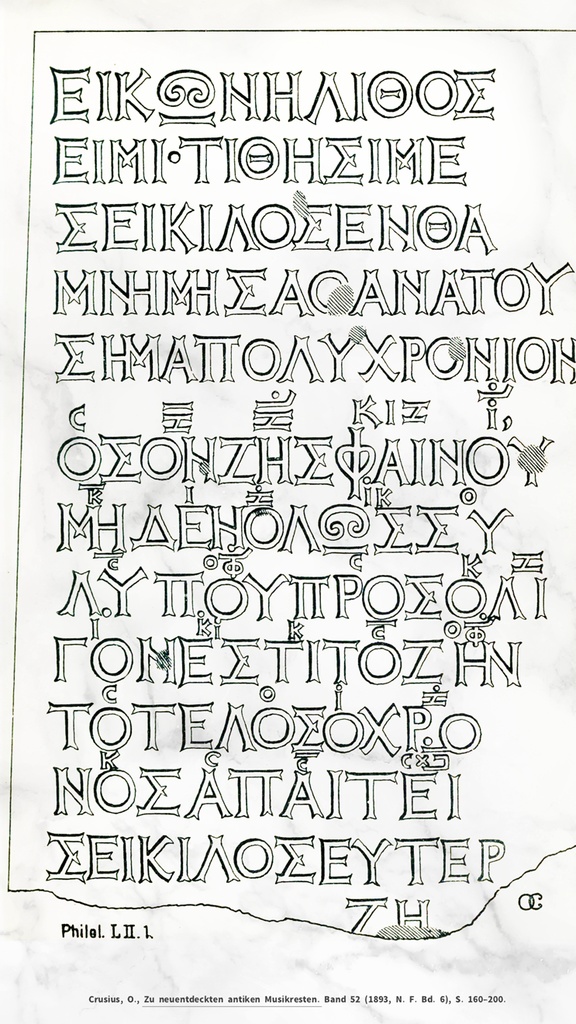 ΕΙΚΩΝΗΛΙΘΟΣ
ΕΙΜΙ·ΤΙΘΗΣΙΜΕ
ΣΕΙΚΙΛΟΣΕΝΘΑ
ΜΝΗΜΗΣΑΘΑΝΑΤΟΥ
ΣΗΜΑΠΟΛΥΧΡΟΝΙΟΝ
ΟΣΟΝΖΗΣΦΑΙΝΟΥ
ΜΗΔΕΝΟΛΩΣΣΥ
ΛΥΠΟΥΠΡΟΣΟΛΙ
ΓΟΝΕΣΤΙΤΟΖΗΝ
ΤΟΤΕΛΟΣΟΧΡΟ
ΝΟΣΑΠΑΙΤΕΙ
ΣΕΙΚΙΛΟΣΕΥΤΕΡ
ΖΗ
Philol. LII. 1.
Crusius, O., Zu neuentdeckten antiken Musikresten. Band 52 (1893, N. F. Bd. 6), S. 160–200.